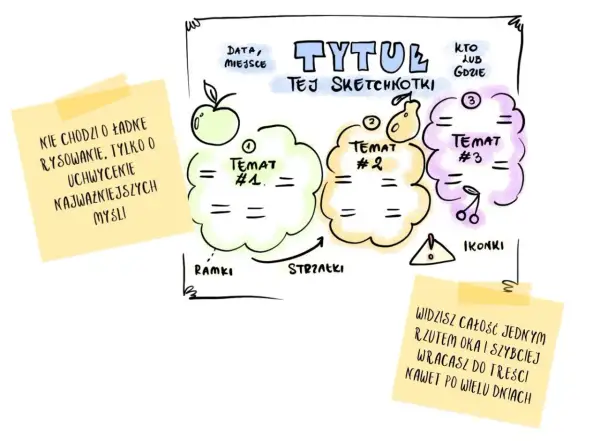 DATA,
MIEJSCE
TYTUŁ
TEJ SKETCHNOTKI
KTO
LUB
GDZIE
NIE CHODZI O ŁADNE
RYSOWANIE, TYLKO O
UCHWYCENIE
NAJWAŻNIEJSZYCH
MYŚLI
1
TEMAT
#1
2
TEMAT
#2
3
TEMAT
#3
RAMKI
STRZAŁKI
!
IKONKI
WIDZISZ CAŁOŚĆ JEDNYM
RZUTEM OKA I SZYBCIEJ
WRACASZ DO TREŚCI
NAWET PO WIELU DNIACH